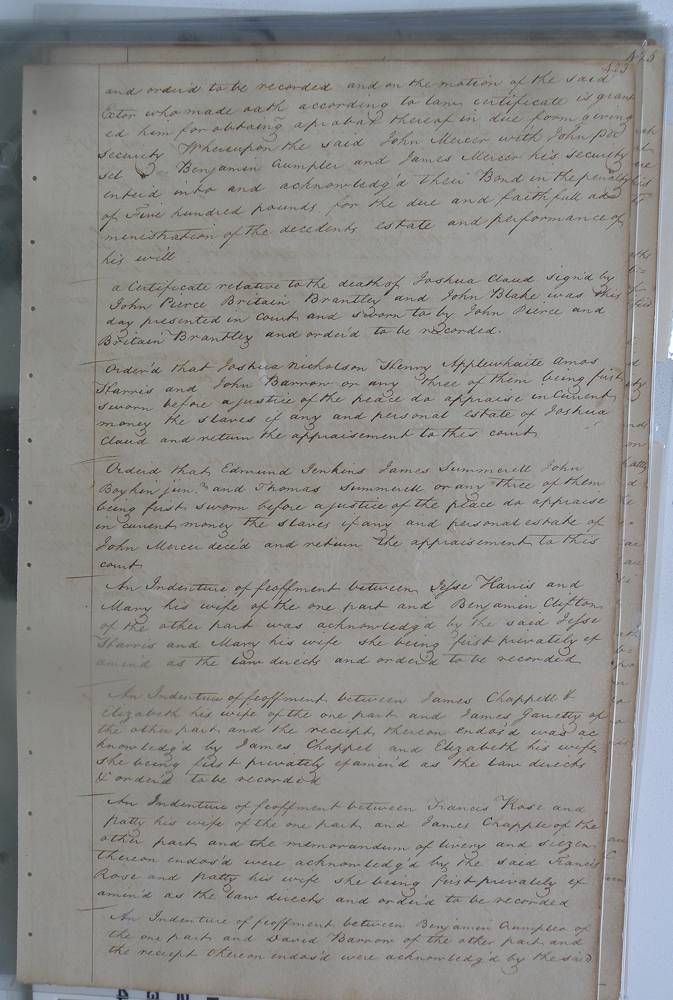 423
and order'd to be recorded and on the motion of the said
Exctor who made oath according to law certificate is grant
ed him for obtaing a probat thereof in due form giving
security Whereupon the said John Mercer with John
Benjamin Crumpler and James Mercer his security
enter'd into and acknowledg'd their Bond in the penalty
of Five hundred pounds for the due and faithfull ad
ministration of the decedents estate and performance of
his will
a Certificate relative to the death of Joshua Claud sign'd by
John Pierce Britain Brantley and John Blake was this
day presented in court and sworn to by John Pierce and
Britain Brantley and order'd to be recorded.
Order'd that Joshua Nicholson Henry Applewhaite Amos
Harris and John Barrow or any three of them being first
sworn before a justice of the peace do appraise in current
money the slaves if any and personal estate of Joshua
Claud and return the appraisement to this court
Order'd that Edmund Jenkins James Summerell John
Boykin jun.r and Thomas Summerell or any three of them
being first sworn before a justice of the peace do appraise
in current money the slaves if any and personal estate of
John Mercer dece'd and return the appraisement to this
court
An Indenture of feoffment between Jesse Harris and
Mary his wife of the one part and Benjamin Clifton
of the other part was acknowledg'd by the said Jesse
Harris and Mary his wife she being first privately ex
amin'd as the law directs and order'd to be recorded
An Indenture of feoffment between James Chappell &
Elizabeth his wife of the one part and James Garretty of
the other part and the receipt thereon endos'd was ac
knowledg'd by James Chappel and Elizabeth his wife
she being first privately examin'd as the law directs
& order'd to be recorded
An Indenture of feoffment between Francis Rose and
patty his wife of the one part and James Chapple of the
other part and the memorandum of livery and seizen
thereon endos'd were acknowledg'd by the said Francis
Rose and patty his wife she being first privately ex
amin'd as the law directs and order'd to be recorded
An Indenture of feoffment between Benjamin Crumpler of
the one part and David Barrow of the other part and
the receipt thereon endos'd were acknowledg'd by the said